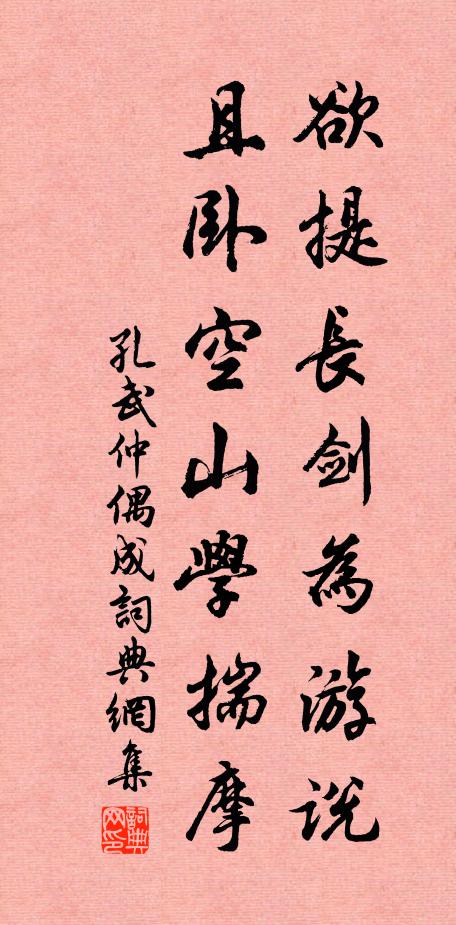 欲提長劍為游説
且卧空山學揣摩
孔武仲偶成詞典網集
詞典网印